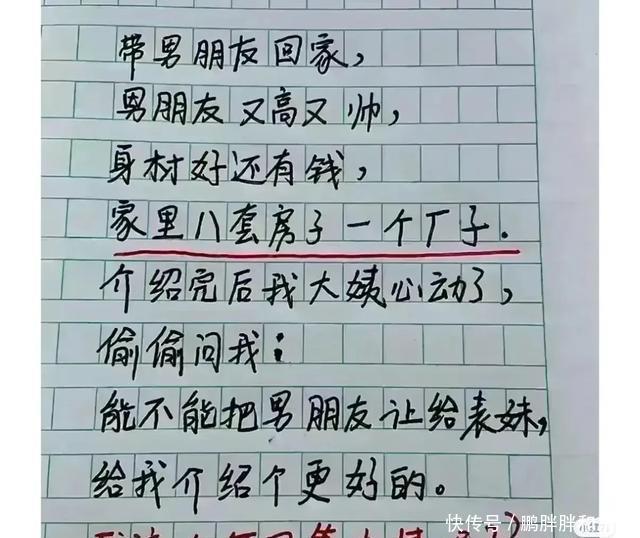 带男朋友回家，
男朋友又高又帅，
身材好还有钱，
家里八套房子一个厂子.
介绍完后我大姨心动了，
偷偷问我：
能不能把男朋友让给表妹，
给我介绍个更好的。
快传号／鹏胖胖和